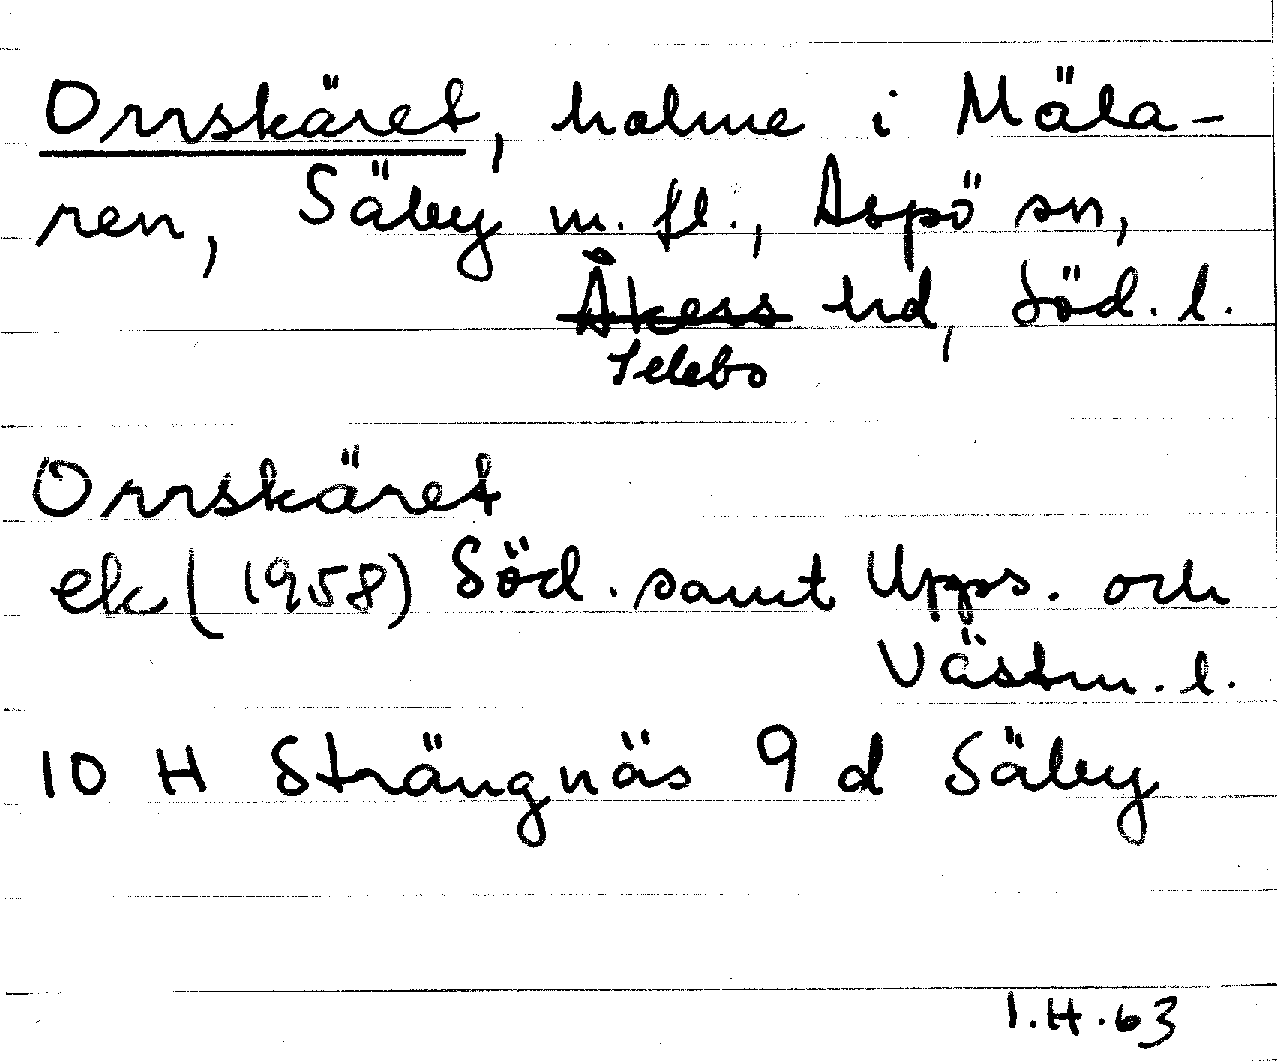 Orrskäret, holme i Mäla-
ren, Säby m. fl., Aspö sn,
Åkers hd, Söd. l.
Selebo
Orrskäret
ek (1958) Söd. samt Upps. och
Västm. l.
10 H Strängnäs 9 d Säby
I.H.63